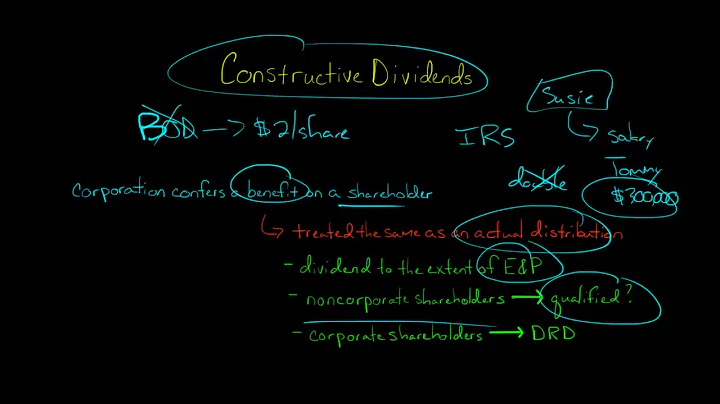 Constructive Dividends
Susie
BOD → $2/share
IRS
↳ salary
Tommy
double
$300,000
corporation confers a benefit on a shareholder
↳ treated the same as an actual distribution
- dividend to the extent of E&P
- noncorporate shareholders → qualified?
- corporate shareholders → DRD